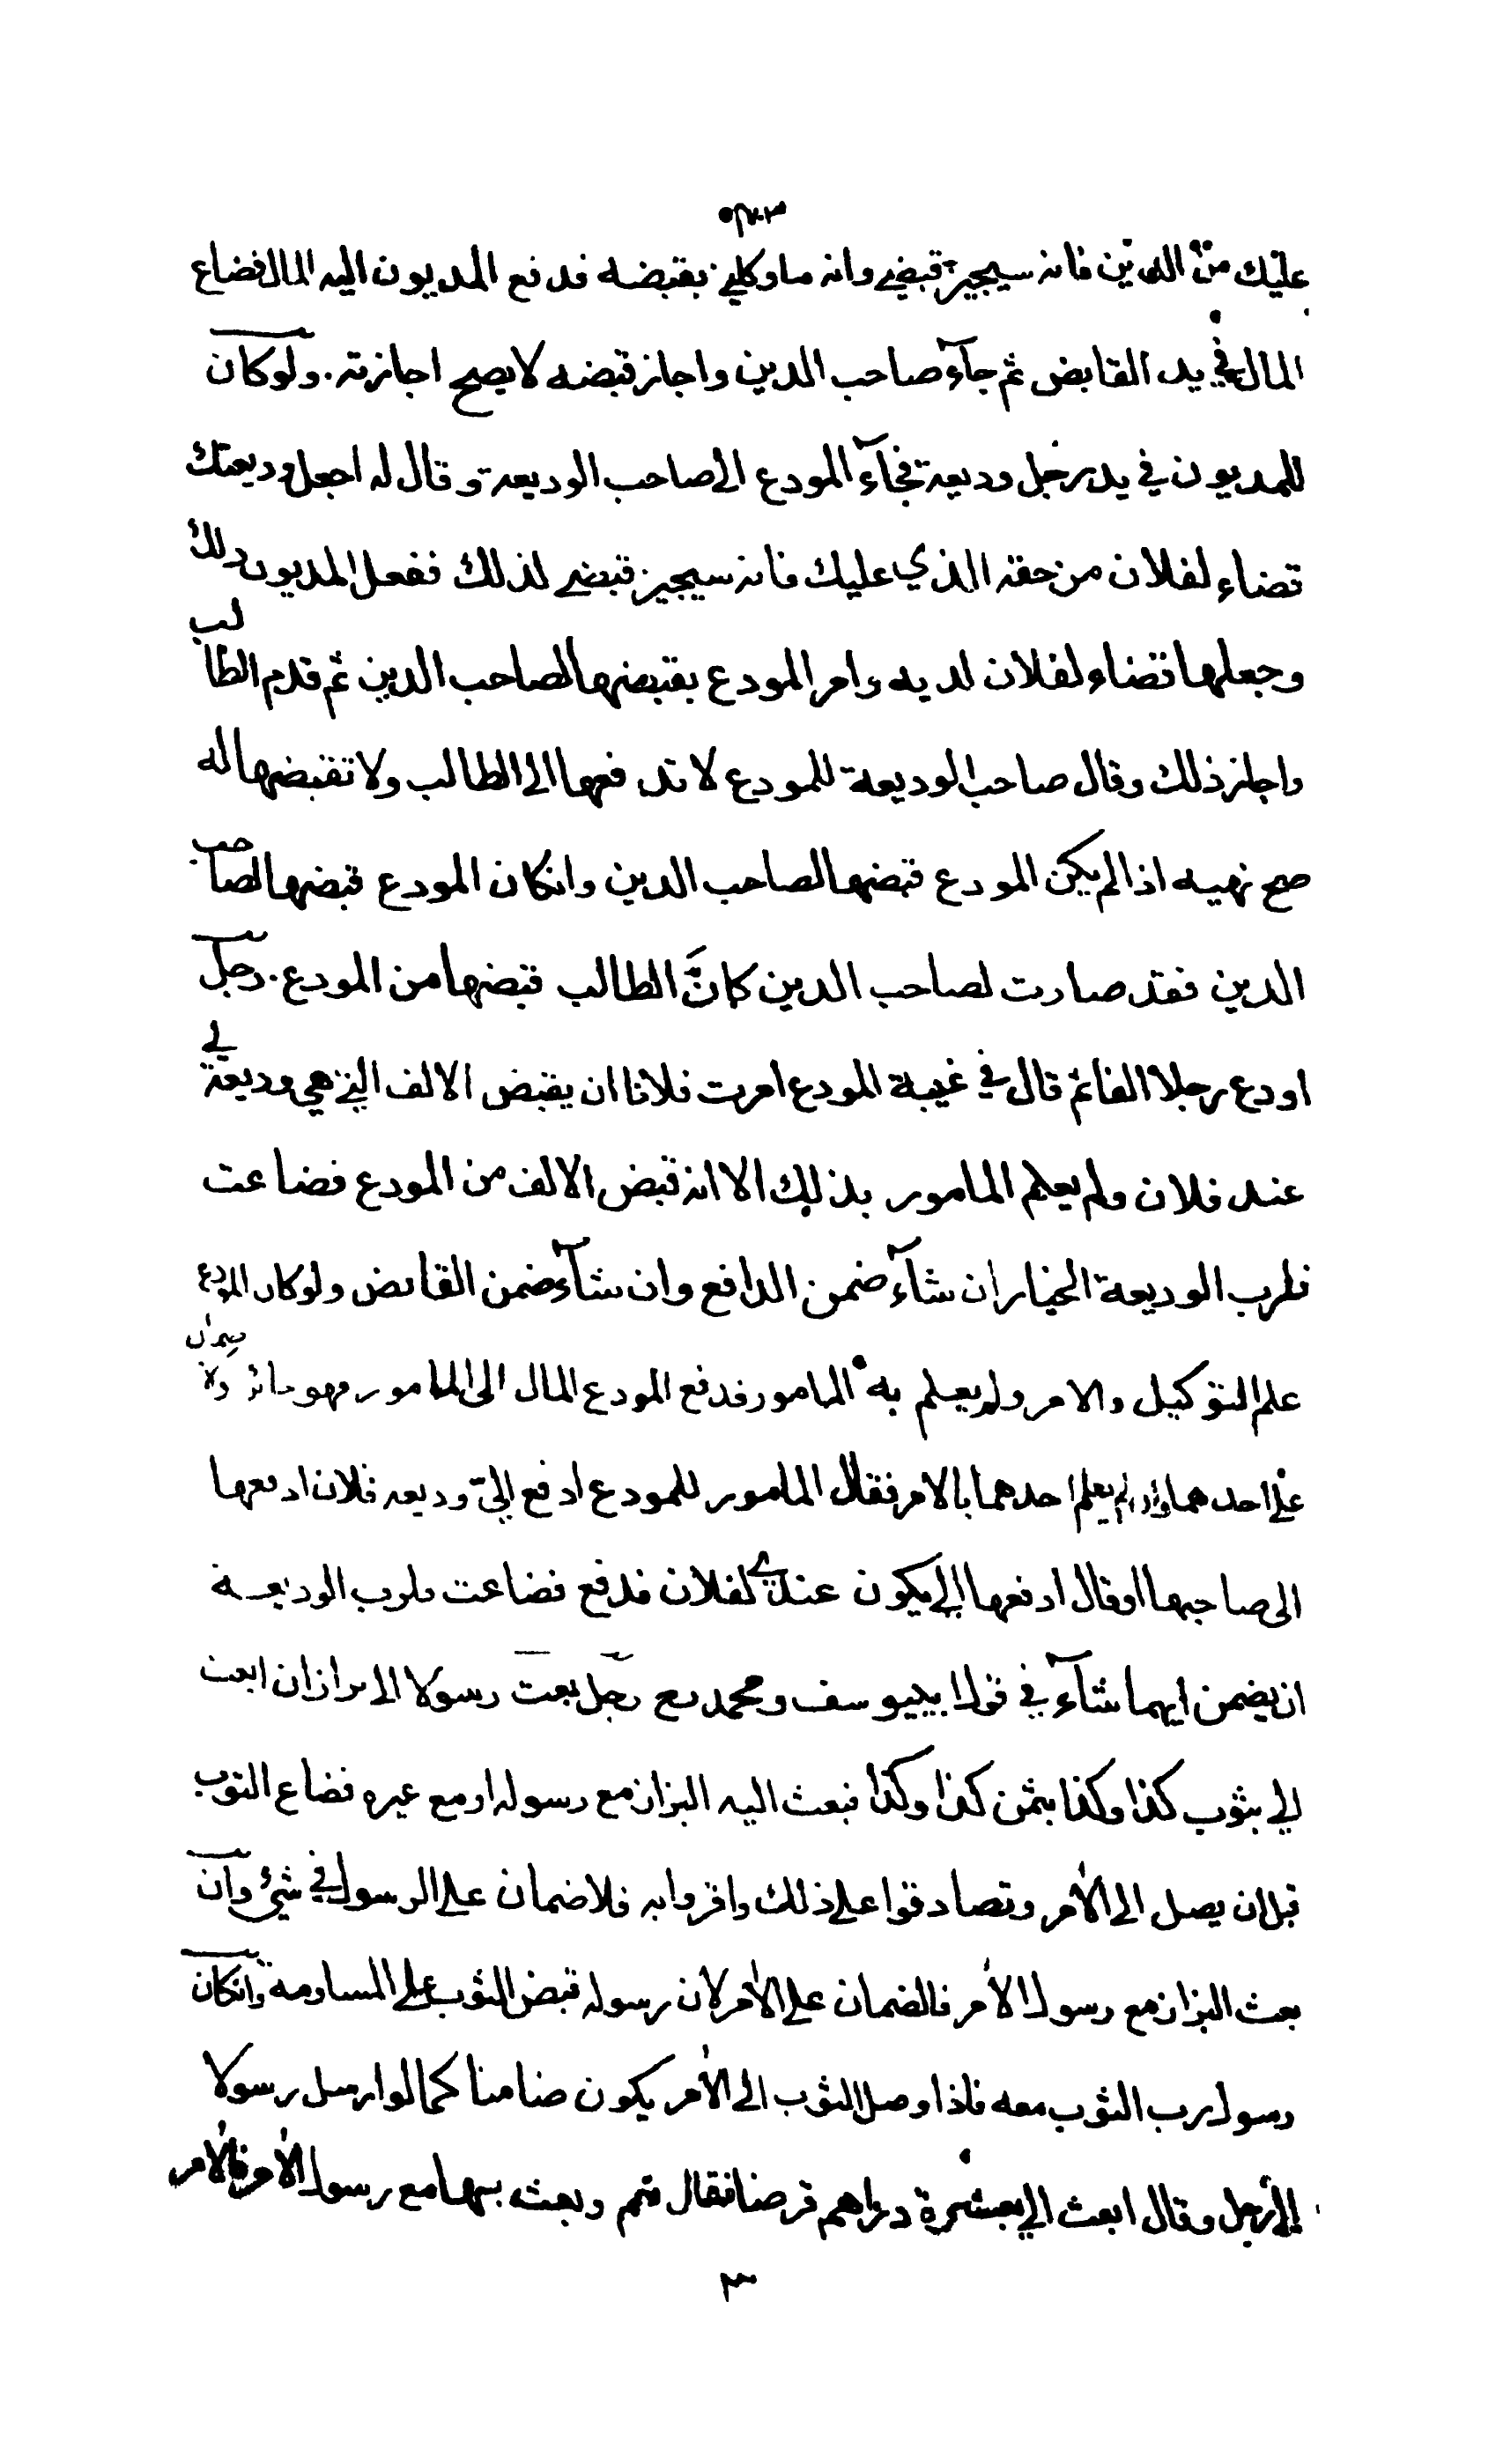 عليك من الدين فانه سيجيز قبضي وانه ما وكلني بقبضه فدفع المديون اليه المال فضاع
المال في يد القابض ثم جآء صاحب الدين واجاز قبضه لا يصح اجازته. ولو كان
للمديون في يد رجل وديعة فجآء المودع الى صاحب الوديعة وقال له اجعل وديعتك
قضاء لفلان من حقه الذي عليك فانه سيجيز قبضي لذلك ففعل المديون ذلك
وجعلها قضاء لفلان لديه وامر المودع بقبضها لصاحب الدين ثم قدم الطالب
واجاز ذلك وقال صاحب الوديعة للمودع لا تدفعها الى الطالب ولا تقبضها له
صح نهيه اذا لم يكن المودع قبضها لصاحب الدين وانكان المودع قبضها لصاحب
الدين فقد صارت لصاحب الدين كانّ الطالب قبضها من المودع. رجل
اودع رجلا الفا ثم قال في غيبة المودع امرت فلانا ان يقبض الالف التي هي وديعة لي
عند فلان ولم يعلم المامور بذلك الا انه قبض الالف من المودع فضاعت
فلرب الوديعة الخيار ان شآء ضمن الدافع وان شآء ضمن القابض ولو كان المودع
علم التوكيل والامر ولم يعلم به المامور فدفع المودع المال الى المامور فهو جائز ولا ضمان
على احدهما وان لم يعلم احدهما بالامر فقال المامور للمودع ادفع اليّ وديعة فلان ادفعها
الى صاحبها او قال ادفعها الي يكون عندي لفلان فدفع فضاعت فلرب الوديعة
ان يضمن ايهما شآء في قول ابي يوسف ومحمد رجل بعث رسولا الى بزاز ان ابعث
الي بثوب كذا وكذا بثمن كذا وكذا فبعث اليه البزاز مع رسوله او مع غيره فضاع الثوب
قبل ان يصل الى الآمر وتصادقوا على ذلك واقروا به فلا ضمان على الرسول في شيئ وان
بعث البزاز مع رسول الآمر فالضمان على الآمر لان رسوله قبض الثوب على المساومة وانكان
رسول رب الثوب معه فاذا وصل الثوب الى الآمر يكون ضامنا كما لو ارسل رسولا
الى رجل وقال ابعث الي بعشرة دراهم قرضا فقال نعم وبعث بها مع رسول الآمر فالآمر
٣